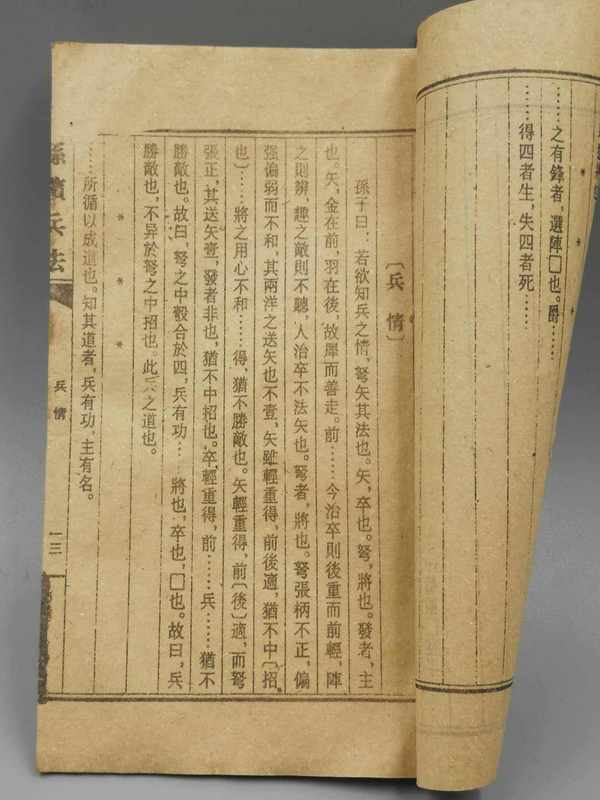 ……之有鋒者，選陣□也。爵……
……得四者生，失四者死……
〔兵情〕
孫子曰：若欲知兵之情，弩矢其法也。矢，卒也。弩，將也。發者，主
也。矢，金在前，羽在後，故犀而善走。前……今治卒則後重而前輕，陣
之則辨，趣之敵則不聽，人治卒不法矢也。弩者，將也。弩張柄不正，偏
强偏弱而不和，其兩洋之送矢也不壹，矢雖輕重得，前後適，猶不中〔招
也〕……將之用心不和……得，猶不勝敵也。矢輕重得，前〔後〕適，而弩
張正，其送矢壹，發者非也，猶不中招也。卒輕重得，前……兵……猶不
勝敵也。故曰，弩之中彀合於四，兵有功……將也，卒也，□也。故曰，兵
勝敵也，不异於弩之中招也。此兵之道也。
＊＊＊
……所循以成道也。知其道者，兵有功，主有名。
孫臏兵法
兵情
一三